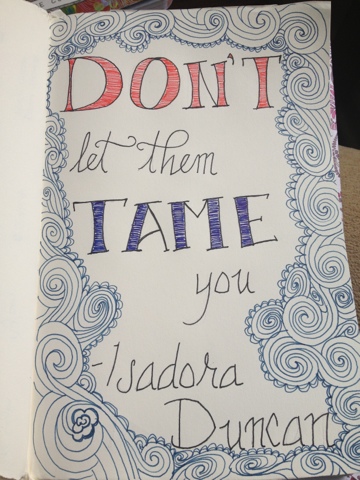 DON'T
let them
TAME
you
-Isadora
Duncan